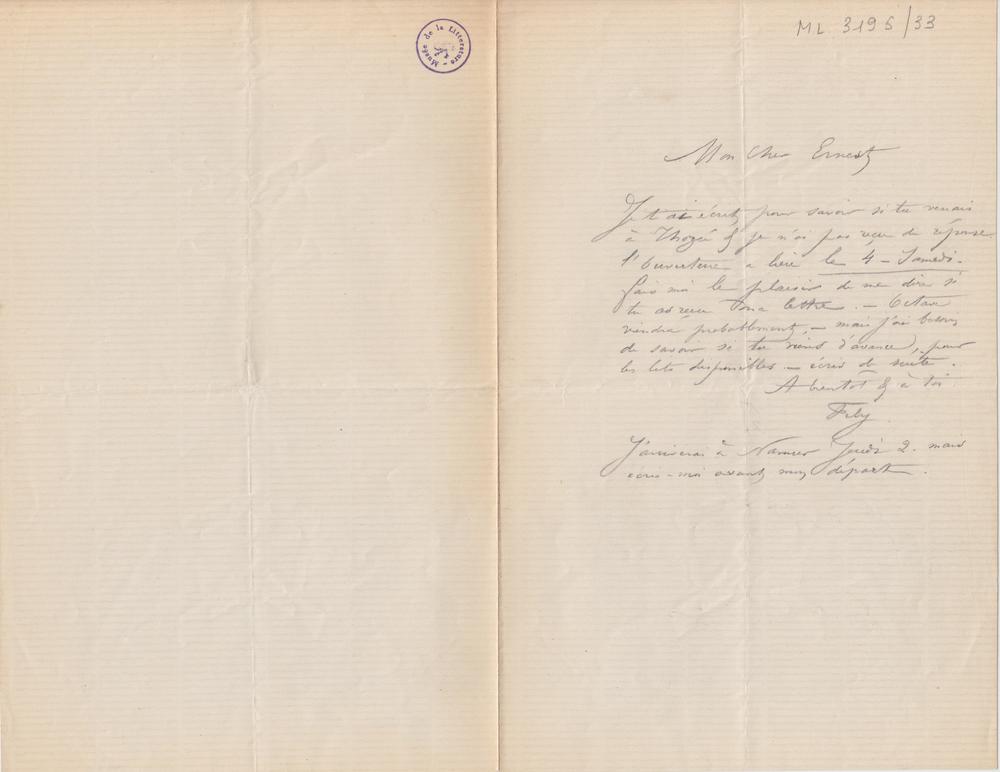 Musée de la Littérature
ML 3195/33
Mon cher Ernest
Je t'ai écrit pour savoir si tu venais
à Thozée & je n'ai pas reçu de réponse
l'ouverture a lieu le 4 – Samedi.
Fais moi le plaisir de me dire si
tu as reçu ma lettre. – Octave
viendra probablement, – mais j'ai besoin
de savoir si tu viens d'avance, pour
les lits disponibles – écris de suite.
A bientôt & à toi
Fély
J'arriverai à Namur Jeudi 2. mais
écris-moi avant mon départ.